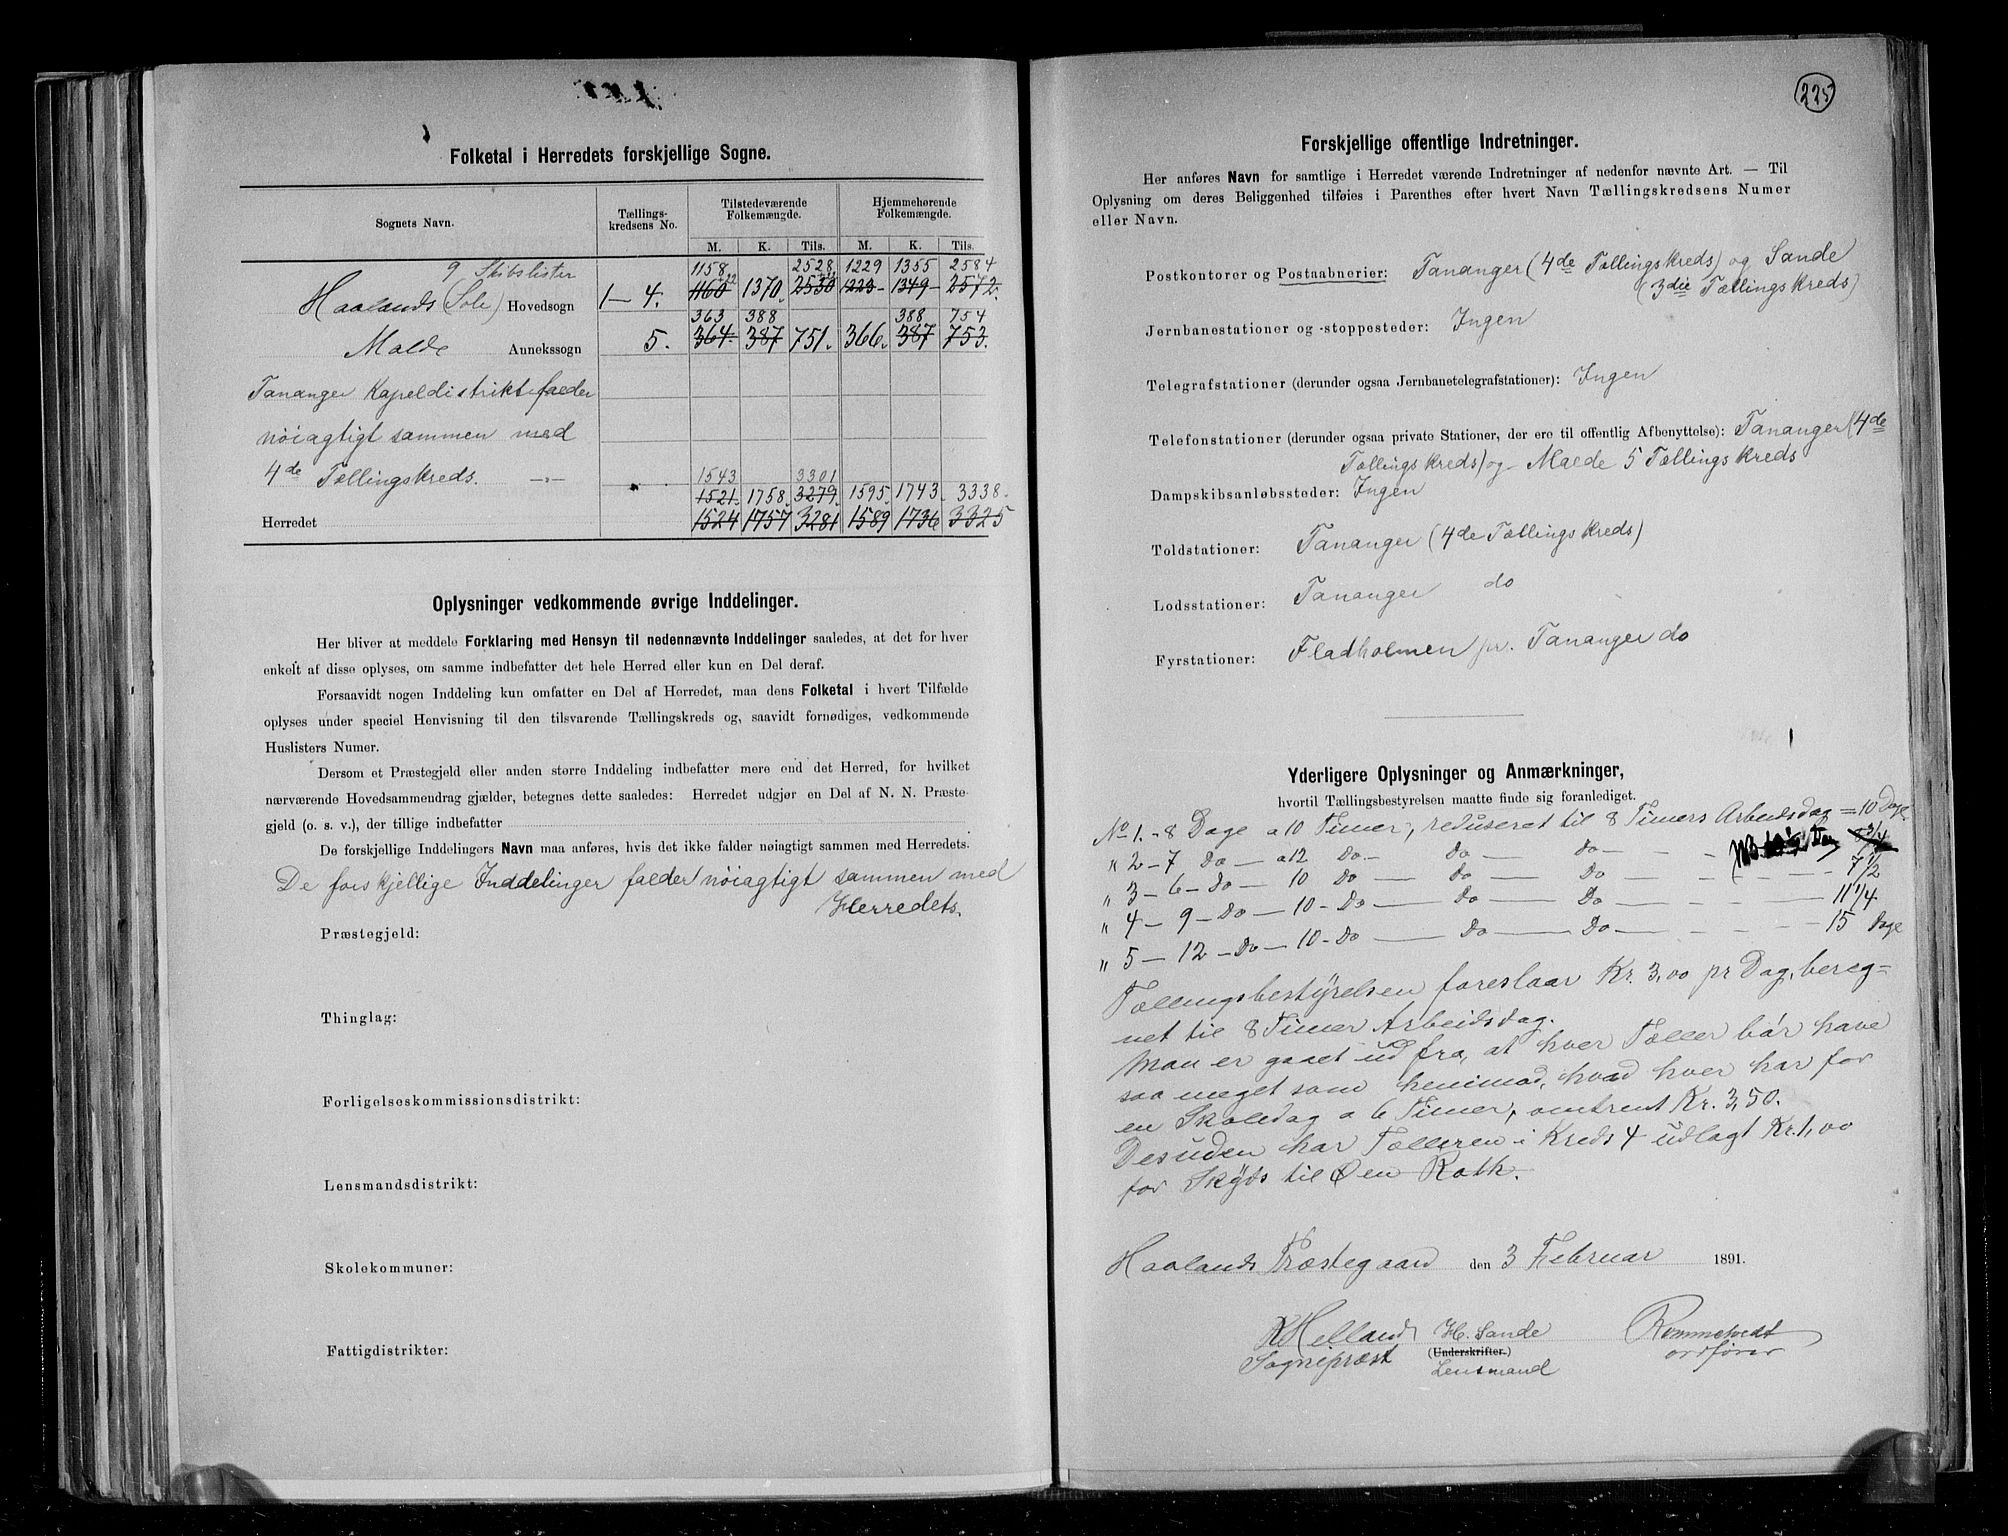 Folketal i Herredets forskjellige Sogne.
Sognets Navn. Tællings-kredsens No. Tilstedeværende Folkemængde. Hjemmehørende Folkemængde.
M. K. Tils. M. K. Tils.
9 Skibslister 1158 22 2528 1229 1355 2584
Haalands (Sole) Hovedsogn 1–4. 1160 1370. 2530 1223 1349 2572.
363 388 388 754
Malde Annekssogn 5. 364. 387 751. 366. 387 753.
Tananger Kapeldistrikt falder
nöiagtigt sammen med
4de Tællingskreds. 1543 3301
1521. 1758. 3279. 1595. 1743. 3338.
Herredet 1524 1757 3281 1589 1736 3325
Oplysninger vedkommende øvrige Inddelinger.
Her bliver at meddele Forklaring med Hensyn til nedennævnte Inddelinger saaledes, at det for hver
enkelt af disse oplyses, om samme indbefatter det hele Herred eller kun en Del deraf.
Forsaavidt nogen Inddeling kun omfatter en Del af Herredet, maa dens Folketal i hvert Tilfælde
oplyses under speciel Henvisning til den tilsvarende Tællingskreds og, saavidt fornødiges, vedkommende
Huslisters Numer.
Dersom et Præstegjeld eller anden større Inddeling indbefatter mere end det Herred, for hvilket
nærværende Hovedsammendrag gjælder, betegnes dette saaledes: Herredet udgjør en Del af N. N. Præste-
gjeld (o. s. v.), der tillige indbefatter
De forskjellige Inddelingers Navn maa anføres, hvis det ikke falder nøiagtigt sammen med Herredets.
De forskjellige Inddelinger falder nöiagtigt sammen med
Herredets.
Præstegjeld:
Thinglag:
Forligelseskommissionsdistrikt:
Lensmandsdistrikt:
Skolekommuner:
Fattigdistrikter:
225
Forskjellige offentlige Indretninger.
Her anføres Navn for samtlige i Herredet værende Indretninger af nedenfor nævnte Art. — Til
Oplysning om deres Beliggenhed tilføies i Parenthes efter hvert Navn Tællingskredsens Numer
eller Navn.
Postkontorer og Postaabnerier: Tananger (4de Tællingskreds) og Sande
(3die Tællingskreds)
Jernbanestationer og -stoppesteder: Ingen
Telegrafstationer (derunder ogsaa Jernbanetelegrafstationer): Ingen
Telefonstationer (derunder ogsaa private Stationer, der ere til offentlig Afbenyttelse): Tananger (4de
Tællingskreds) og Malde 5 Tællingskreds
Dampskibsanløbssteder: Ingen
Toldstationer: Tananger (4de Tællingskreds)
Lodsstationer: Tananger do
Fyrstationer: Fladholmen pr. Tananger do
Yderligere Oplysninger og Anmærkninger,
hvortil Tællingsbestyrelsen maatte finde sig foranlediget.
No 1. - 8 Dage a 10 Timer, reduseret til 8 Timers Arbeidsdag = 10 Dage
" 2 - 7 Do — a 12 Do — Do — Do
" 3 - 6 - Do — 10 Do — Do — Do — 7 1/2
" 4 - 9 - Do — 10 - Do — Do — Do — 11 1/4
" 5 — 12 - Do — 10 - Do — Do — Do — 15 Dage
Tællingsbestyrelsen foreslaar Kr. 3,00 pr Dag, bereg-
net til 8 Timer Arbeidsdag.
Man er gaaet ud fra, at hver Tæller bör have
saa meget som henimod, hvad hver har for
en Skoledag a 6 Timer, omtrent Kr. 3,50.
Desuden har Tælleren i Kreds 4 udlagt Kr. 1,00
for Skyds til Øen Roth.
Haalands Præstegaard den 3 Februar 1891.
Helland H. Sande Rommetvedt
Sogneprest (Underskrifter.) ordförer
Lensmand